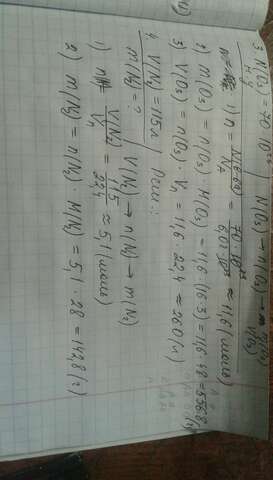 3. N(O₃) = 70 · 10²³ | N(O₃) → n(O₃) → m(O₃)
m-? V(O₃)
1) n = N(O₃)/Nₐ = 70 · 10²³/6,02 · 10²³ ≈ 11,6 (моль)
2) m(O₃) = n(O₃) · M(O₃) = 11,6 · (16·3) = 11,6 · 48 = 556,8 (г)
3) V(O₃) = n(O₃) · Vₙ = 11,6 · 22,4 ≈ 260 (л)
4. V(N₂) = 115 л | Реш.:
m(N₂) = ? | V(N₂) → n(N₂) → m(N₂)
1) n = V(N₂)/Vₙ = 115/22,4 ≈ 5,1 (моль)
2) m(N₂) = n(N₂) · M(N₂) = 5,1 · 28 = 142,8 (г)